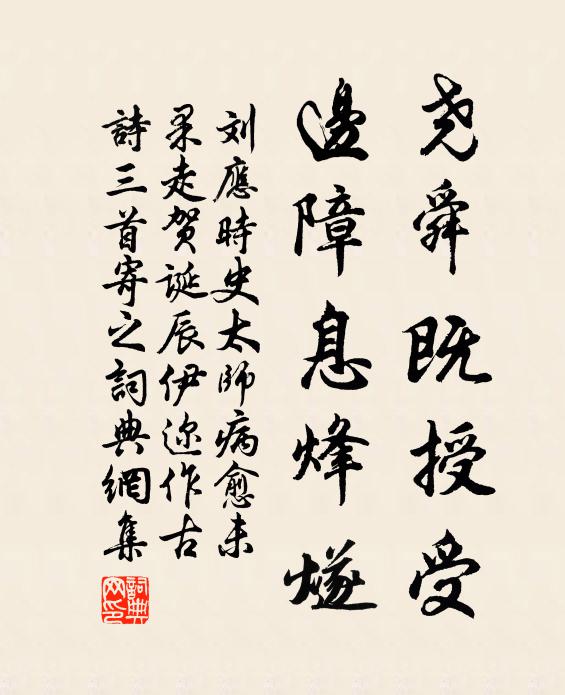 尧舜既授受
邊障息烽燧
刘應時史太師病愈未
果走贺诞辰伊迩作古
詩三首寄之詞典網集
詞典网印